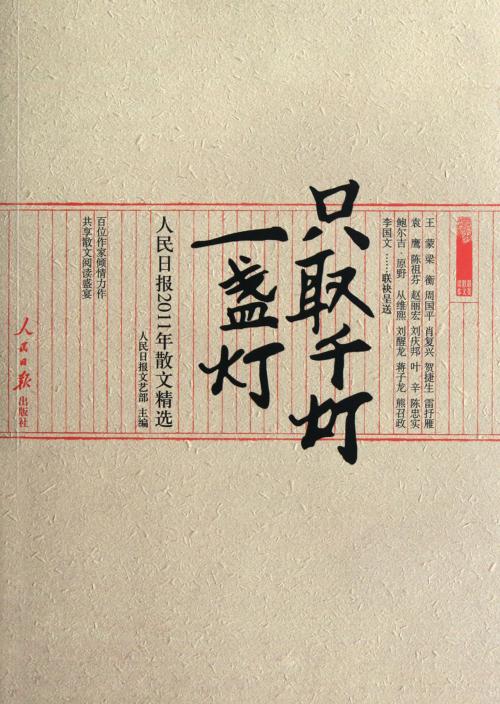 王 蒙 梁 衡 周国平 肖复兴 贺捷生 雷抒雁
袁 鹰 陈祖芬 赵丽宏 刘庆邦 叶 辛 陈忠实
鲍尔吉 原野 从维熙 刘醒龙 蒋子龙 熊召政
李国文……联袂呈送
只取千灯
一盏灯
人民日报2011年散文精选
人民日报文艺部 主编
百位作家倾情力作
共享散文阅读盛宴
人民日报
出版社